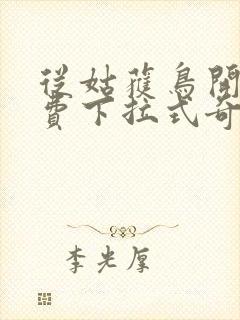 從姑蒦鳥開
費下拉式奇
李光厚